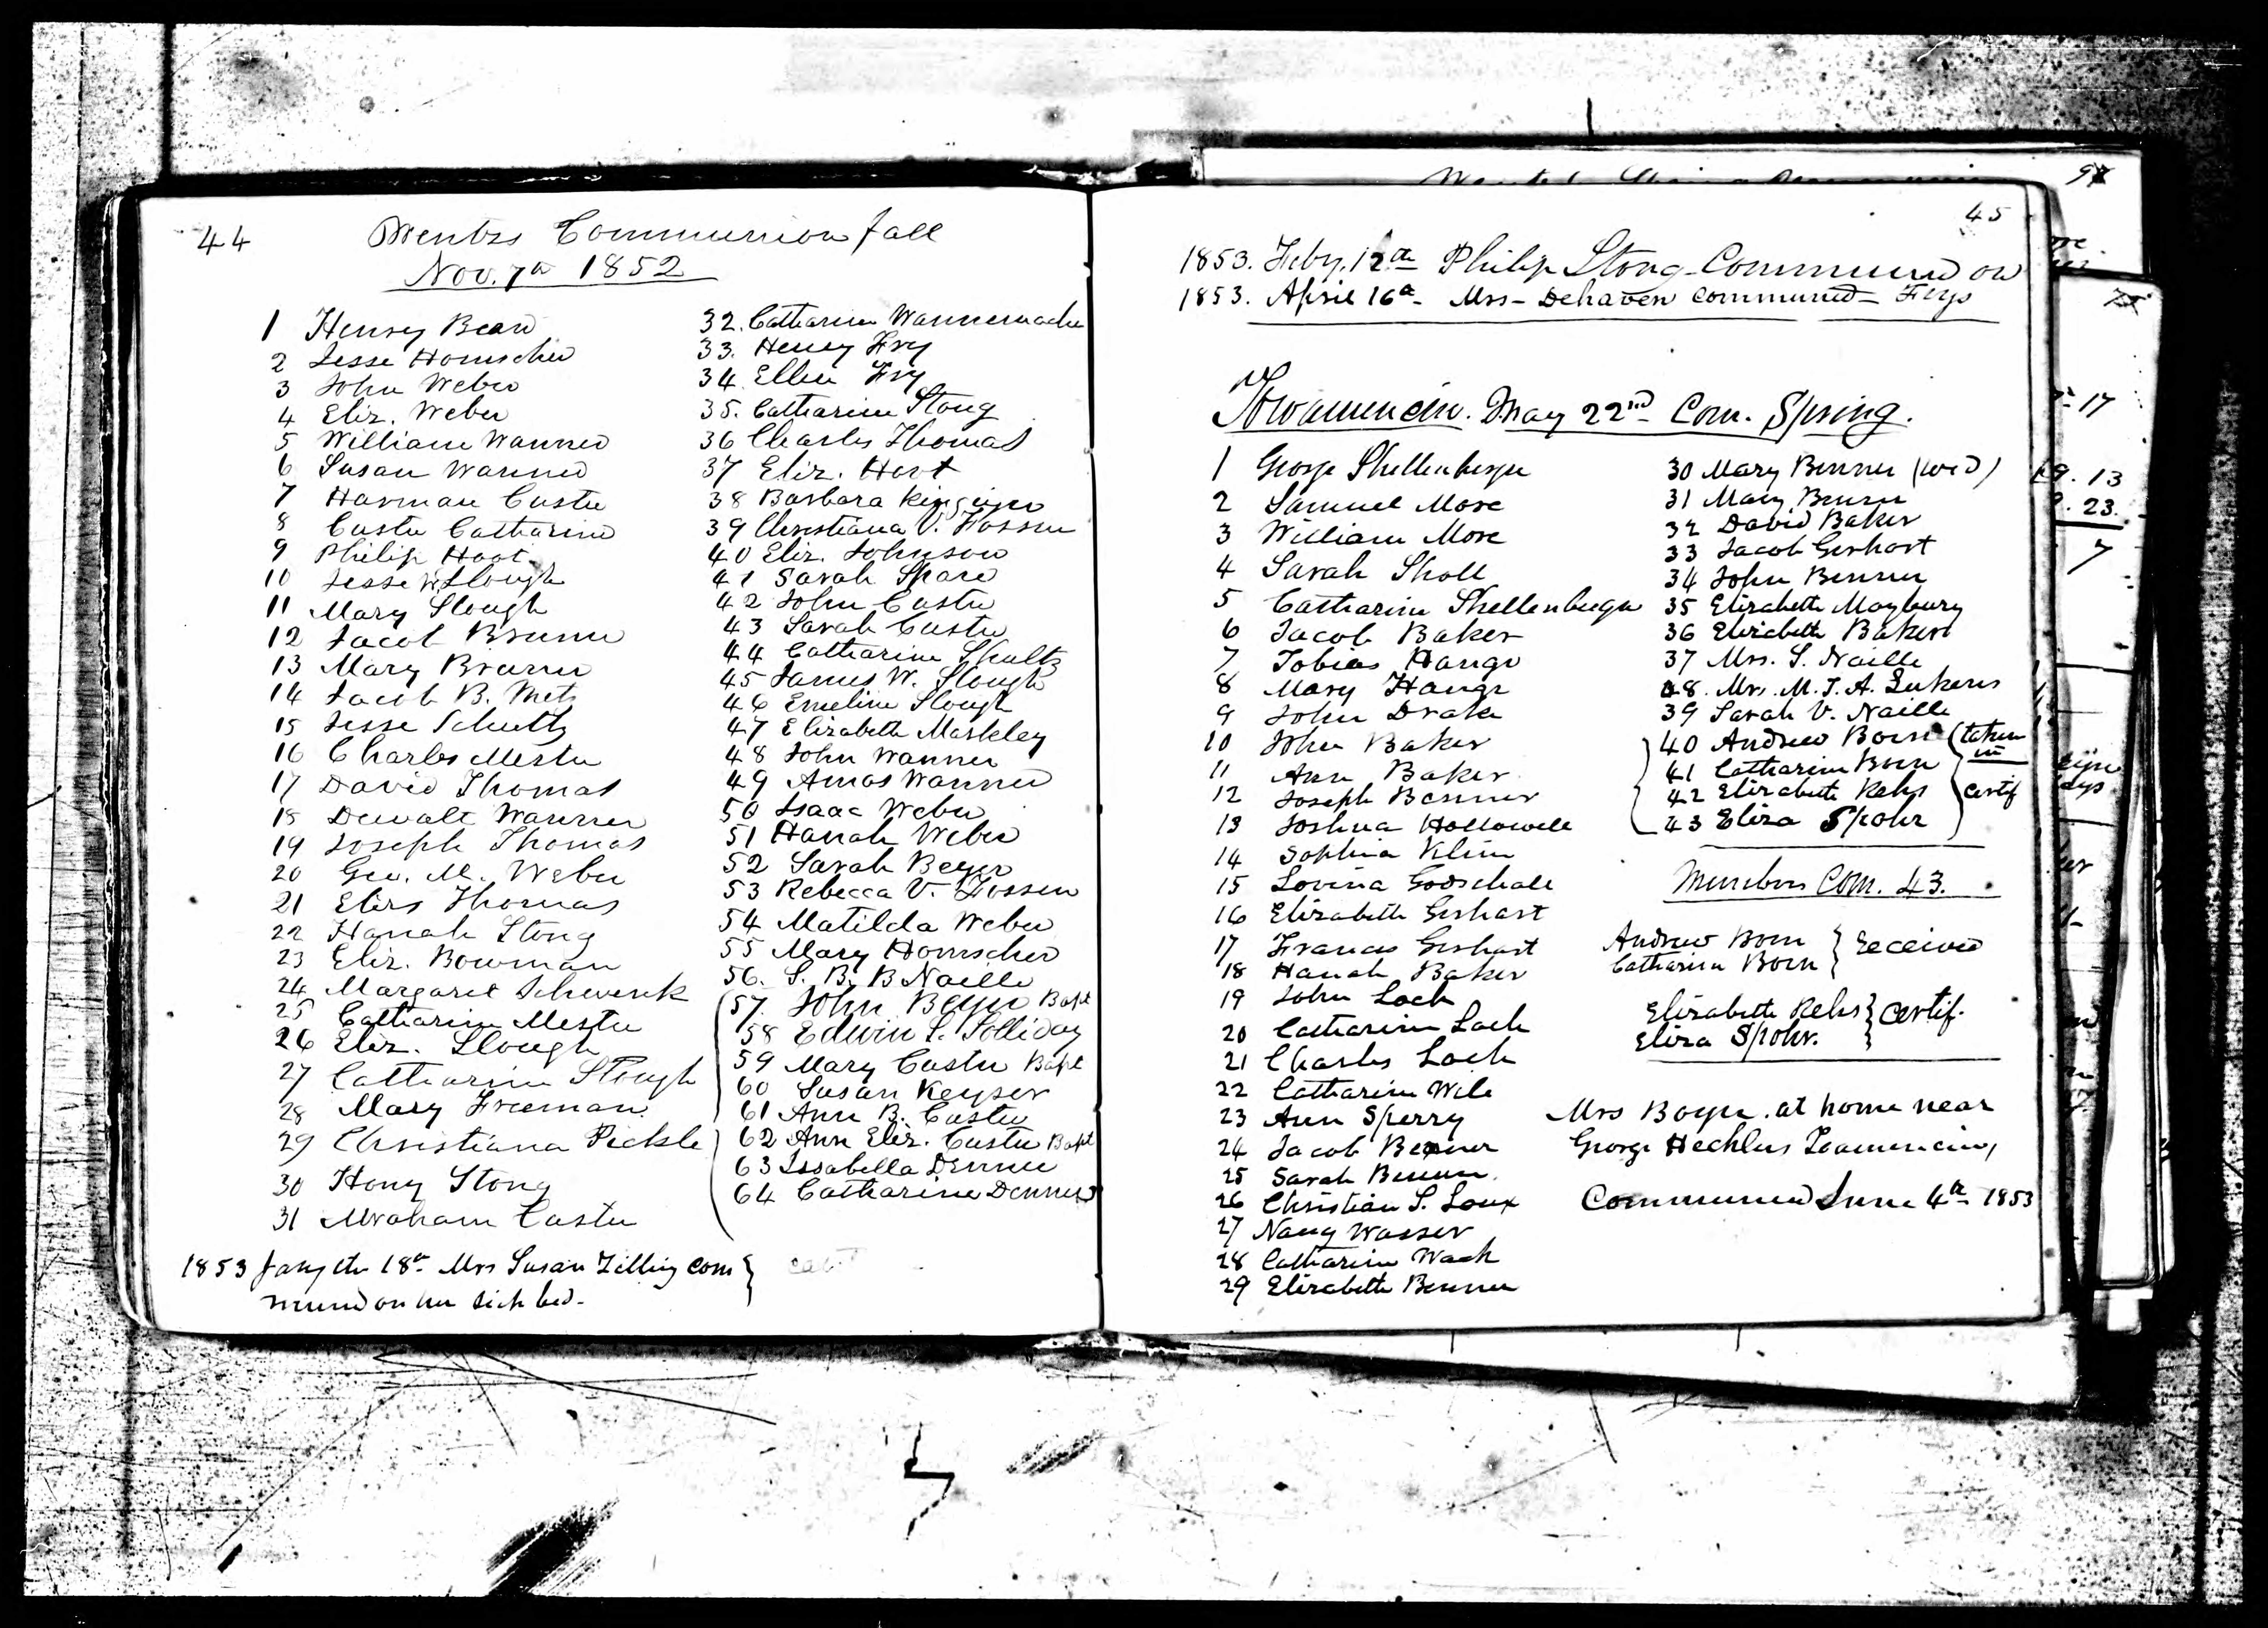 44
Wentzs Communion fall
Nov. 7th 1852
1 Henry Bean
2 Jesse Homscher
3 John Weber
4 Eliz. Weber
5 William Wanner
6 Susan Wanner
7 Harman Custer
8 Custer Catharine
9 Philip Hoot
10 Jesse W. Slough
11 Mary Slough
12 Jacob Brunner
13 Mary Brunner
14 Jacob B. Metz
15 Jesse Schultz
16 Charles Mester
17 David Thomas
18 Dewalt Wanner
19 Joseph Thomas
20 Geo. M. Weber
21 Eliz Thomas
22 Hanah Stong
23 Eliz. Bowman
24 Margaret Schwenk
25 Catharine Mester
26 Eliz. Slough
27 Catharine Slough
28 Mary Freeman
29 Christiana Pickle
30 Hony Stong
31 Abraham Custer
32. Catharine Wannemacher
33. Henry Fry
34 Ellen Fry
35. Catharine Stong
36 Charles Thomas
37 Eliz. Hoot
38 Barbara
39 Christiana V. Fossen
40 Eliz. Johnson
41 Sarah Spare
42 John Custer
43 Sarah Custer
44 Catharine Shultz
45 James W. Slough
46 Emeline Slough
47 Elizabeth Markley
48 John Wanner
49 Amos Wanner
50 Isaac Weber
51 Hanah Weber
52 Sarah Beyer
53 Rebecca V. Fossen
54 Matilda Weber
55 Mary Homscher
56. S. B. B Naille
57. John Beyer Bapt
58 Edwin S. Solliday
59 Mary Custer Bapt
60 Susan Keyser
61 Ann B. Custer
62 Ann Eliz. Custer Bapt
63 Issabella Denner
64 Catharine Denner
1853 Jany the 18th Mrs Susan Zilling com
muned on her sick bed.
45
1853. Feby. 12th Philip Stong Communed on
1853. April 16th - Mrs - Dehaven communed - Frys
Towamencin. May 22nd Com. Spring.
1 George Shellenberger
2 Samuel More
3 William More
4 Sarah Sholl
5 Catharine Shellenberger
6 Jacob Baker
7 Tobias Hange
8 Mary Hange
9 John Drake
10 John Baker
11 Ann Baker
12 Joseph Benner
13 Joshua Hollowell
14 Sophia Kline
15 Lovina Godschall
16 Elizabeth Gerhart
17 Francis Gerhart
18 Hanah Baker
19 John Lach
20 Catharine Lach
21 Charles Lach
22 Catharine Wile
23 Ann Sperry
24 Jacob Benner
25 Sarah Benner
26 Christian S. Loux
27 Nancy Wasser
28 Catharine Wach
29 Elizabeth Benner
30 Mary Benner (wid)
31 Mary Benner
32 David Baker
33 Jacob Gerhart
34 John Benner
35 Elizabeth Maybury
36 Elizabeth Baker
37 Mrs. S. Naille
48. Mrs. M. J. A. Lukens
39 Sarah V. Naille
40 Andrew Born (taken
in
41 Catharine Born
42 Elizabeth Rehs certif
43 Eliza Spohr
Members Com. 43.
Andrew Born
Catharine Born } received
Elizabeth Rehs } certif.
Eliza Spohr.
Mrs Boyer. at home near
George Hechlers Toamencing
Communed June 4th 1853